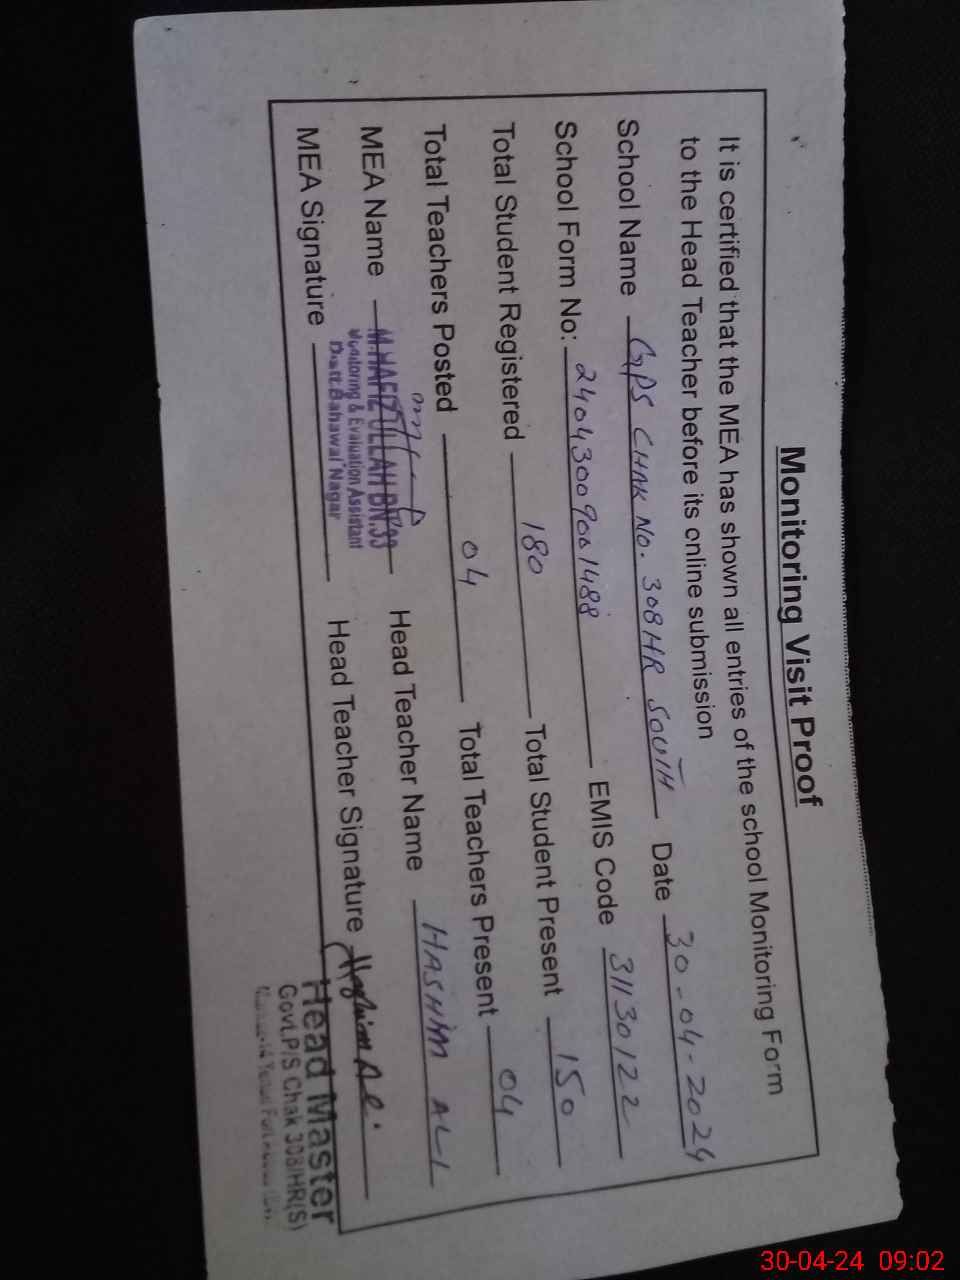 Monitoring Visit Proof
It is certified that the MEA has shown all entries of the school Monitoring Form
to the Head Teacher before its online submission
School Name GPS CHAK No. 308HR SOUTH Date 30-04-2024
School Form No: 2404300901488 EMIS Code 31130122
Total Student Registered 180 Total Student Present 150
Total Teachers Posted 04 Total Teachers Present 04
MEA Name M.HAFIZ ULLAH BN.33 Head Teacher Name HASHIM ALI
Monitoring & Evaluation Assistant
Distt.Bahawal Nagar
MEA Signature Head Teacher Signature Hashim Ali
Head Master
Govt.P/S Chak 308/HR(S)
30-04-24 09:02